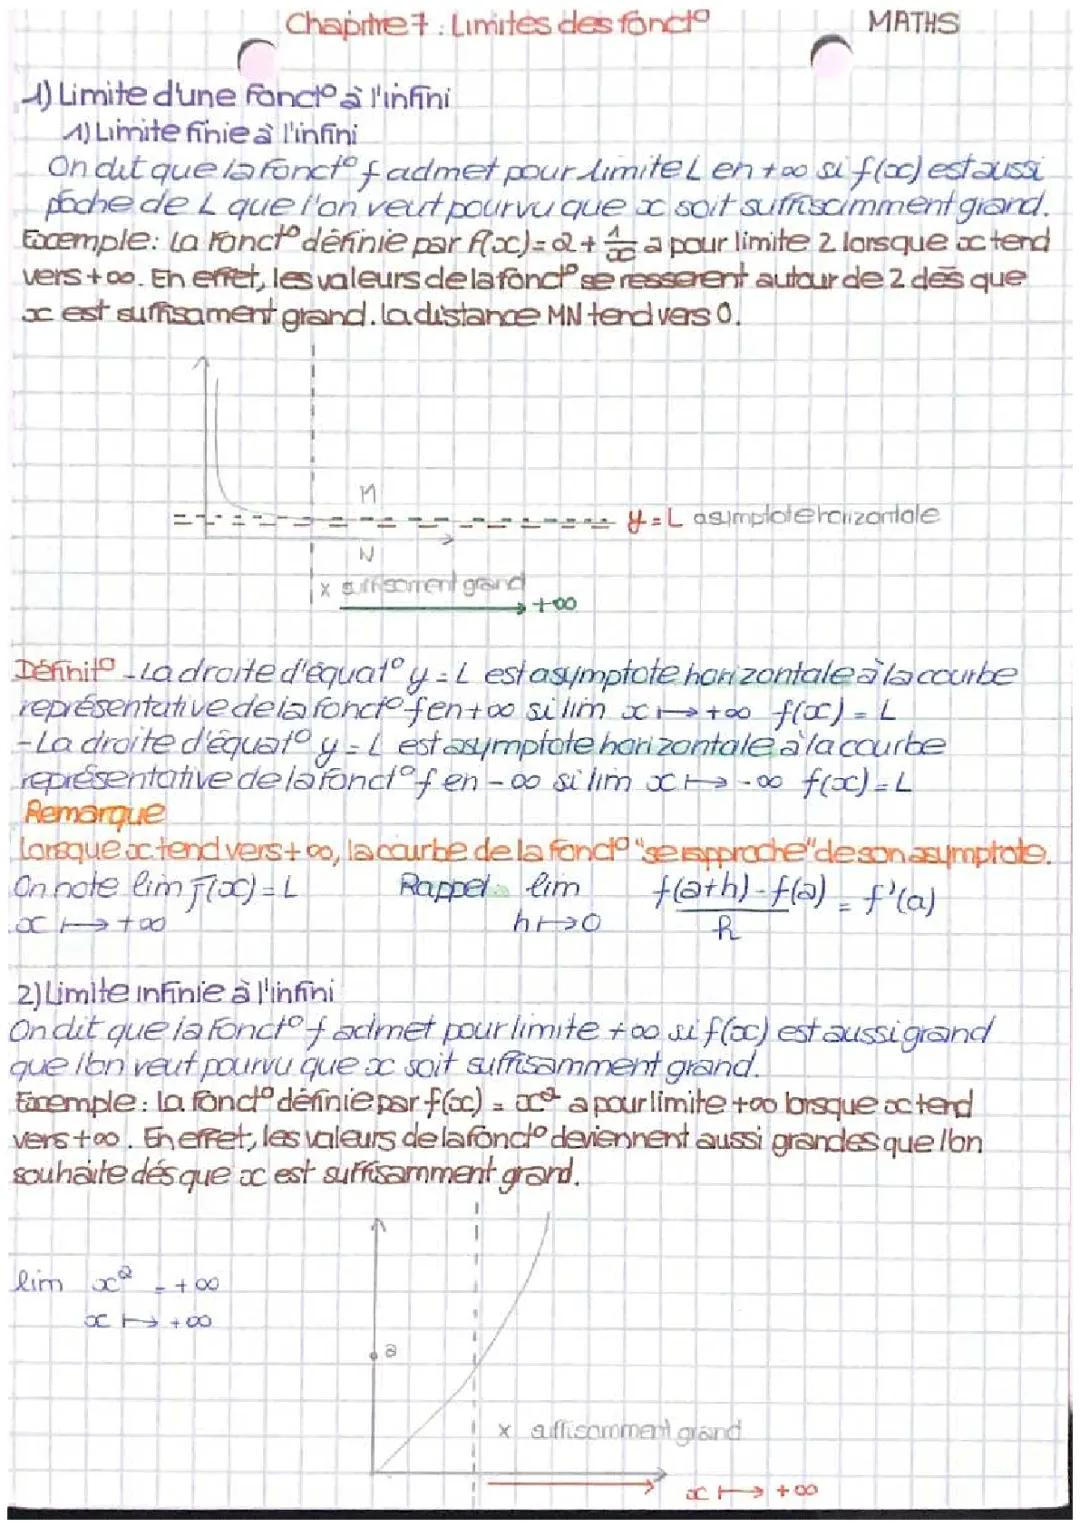 Chapitre 7 : Limites des fonct° MATHS
1) Limite d'une fonct° à l'infini
1) Limite finie à l'infini
On dit que la fonct° f admet pour limite L en +∞ si f(x) est aussi
poche de L que l'on veut pourvu que x soit suffiscimment grand.
Exemple: La fonct° définie par f(x) = 2 + 1/x a pour limite 2 lorsque x tend
vers +∞. En effet, les valeurs de la fonct° se resserent autour de 2 dès que
x est suffisament grand. La distance MN tend vers 0.
M
y = L asymptote horizontale
N
x suffisament grand
+∞
Définit° - La droite d'équat° y = L est asymptote horizontale à la courbe
représentative de la fonct° f en +∞ si lim x ↦ +∞ f(x) = L
- La droite d'équat° y = L est asymptote horizontale à la courbe
représentative de la fonct° f en -∞ si lim x ↦ -∞ f(x) = L
Remarque
Lorsque x tend vers +∞, la courbe de la fonct° "se rapproche" de son asymptote.
On note lim f(x) = L Rappel: lim f(a+h) - f(a) / h = f'(a)
x ↦ +∞ h ↦ 0
2) Limite infinie à l'infini
On dit que la fonct° f admet pour limite +∞ si f(x) est aussi grand
que l'on veut pourvu que x soit suffisamment grand.
Exemple : La fonct° définie par f(x) = x² a pour limite +∞ lorsque x tend
vers +∞. En effet, les valeurs de la fonct° deviennent aussi grandes que l'on
souhaite dés que x est suffisamment grand.
lim x² = +∞
x ↦ +∞
a
x suffisamment grand
x ↦ +∞